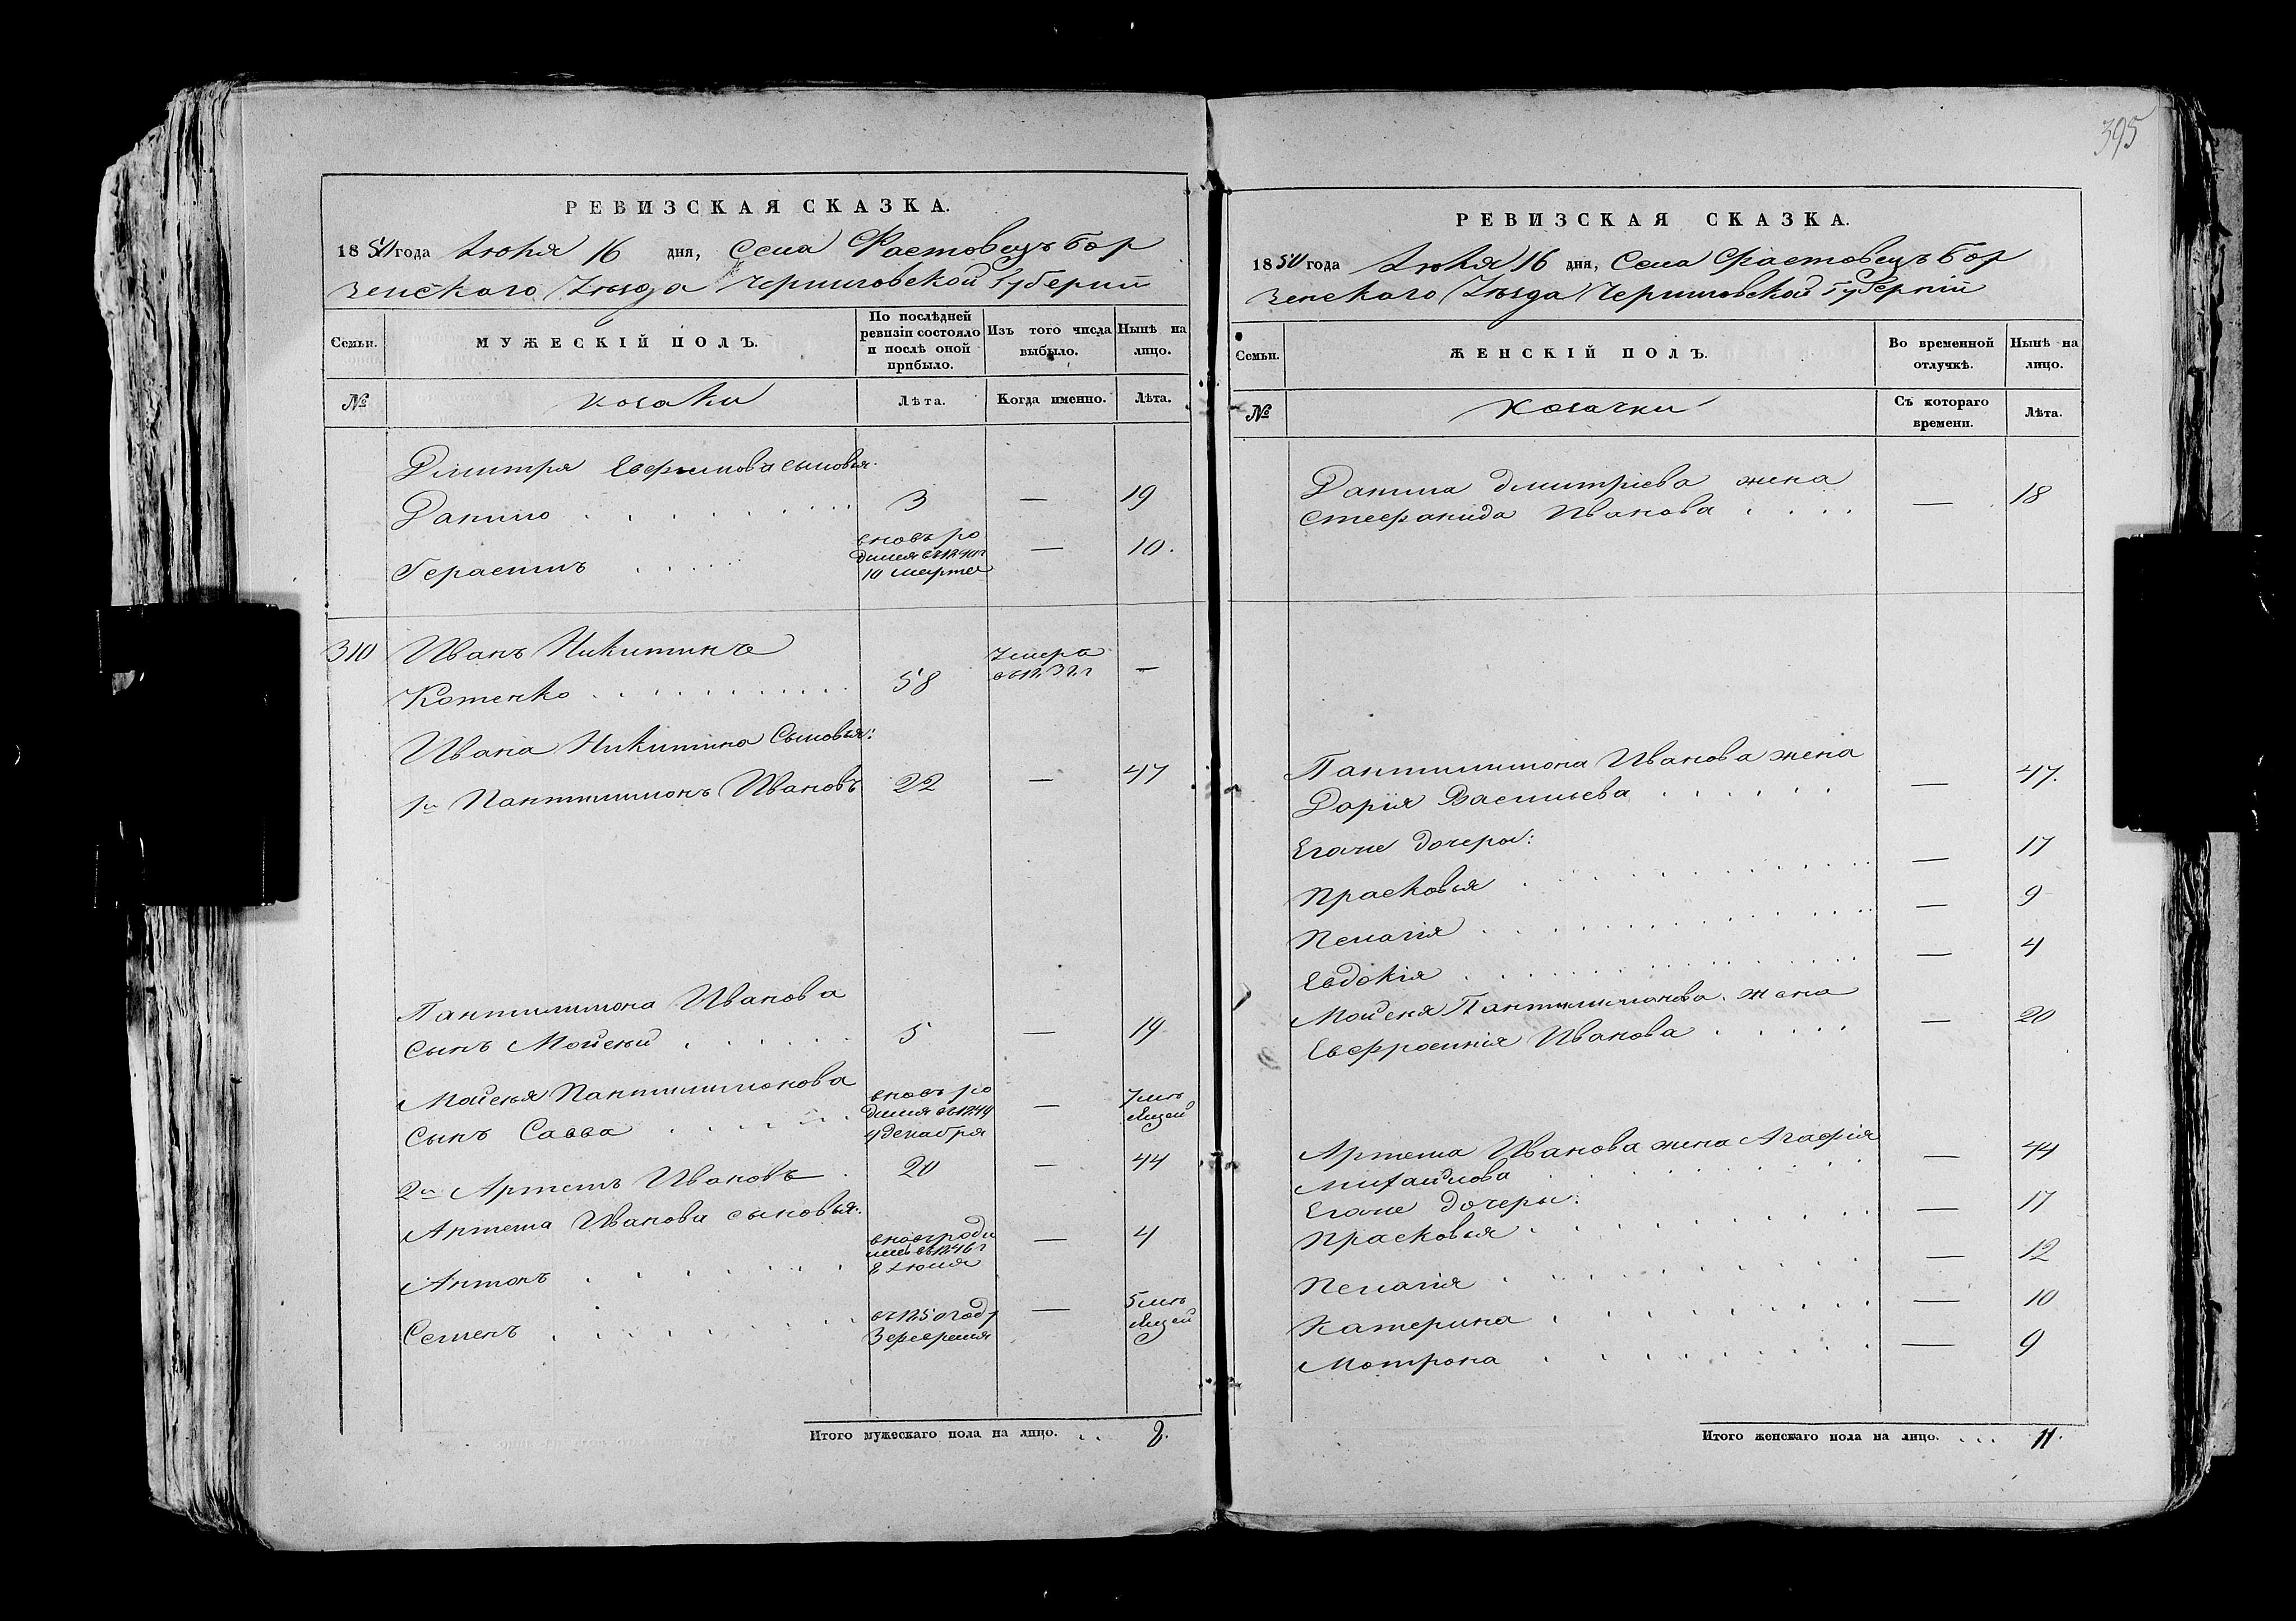 РЕВИЗСКАЯ СКАЗКА.
1850 года Іюня 16 дня, Села Фастовецъ Бор
зенского Уѣзда Черниговской Губерніи
Семьи.
МУЖЕСКІЙ ПОЛЪ.
По послѣдней ревизіи состояло и послѣ оной прибыло.
Изъ того числа выбыло.
Нынѣ на лицо.
№
козаки
Лѣта.
Когда именно.
Лѣта.
Дмитрія Евфимова сыновья.
Данило . . . . . . . . 3 — 19
Герасимъ . . . . . вновь ро
дился въ 1840 г
10 марта — 10.
310 Иванъ Никитинъ
Котенко . . . . . . . . . . 58 Умеръ
въ 1837 г —
Ивана Никитина Сыновья:
1й Пантилимонъ Ивановъ 22 — 47
Пантилимона Иванова
сынъ Мойсей . . . . . . 5 — 19
Мойсея Пантилимонова
сынъ Савва . . . . . . вновь ро
дился въ 1849
4 декабря — 7 мѣ
сяцей
2й Артемъ Ивановъ . 20 — 44
Артема Иванова сыновья:
Антонъ . . . . . . . вновь роди
лся въ 1846 г
8 Іюля — 4
Семенъ . . . . . . . . . въ 1850 году
3 февраля — 5 мѣ
сяцей
Итого мужескаго пола на лицо. . . 8.
395
РЕВИЗСКАЯ СКАЗКА.
1850 года Іюня 16 дня, Села Фастовецъ Бор
зенского Уѣзда Черниговской Губерніи
Семьи.
ЖЕНСКІЙ ПОЛЪ.
Во временной отлучкѣ.
Нынѣ на лицо.
№
Козачки
Съ котораго времени.
Лѣта.
Данила Дмитріева жена
Стефанида Иванова . . . . — 18
Пантилимона Иванова жена
Дарія Васильева . . . . . . — 47.
Егоже дочеры:
Прасковья . . . . . . . . . — 17
Пелагія . . . . . . . . . — 9
Евдокія . . . . . . . . . — 4
Мойсея Пантилимонова жена
Евфросинія Иванова . . . . . — 20
Артема Иванова жена Агафія
Михайлова . . . . . . . — 44
Егоже дочеры:
Прасковья . . . . . . . . — 17
Пелагія . . . . . . . . — 12
Катерина . . . . . . . . — 10
Мотрона . . . . . . . . — 9
Итого женскаго пола на лицо. . . . 11.